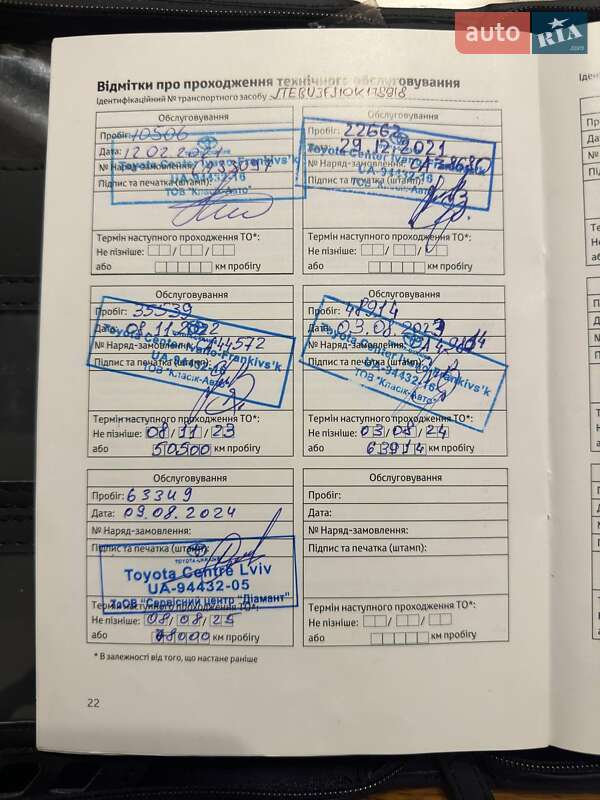 auto RIA .com
Відмітки про проходження технічного обслуговування
Ідентифікаційний № транспортного засобу
Обслуговування
Пробіг: 10506
Дата: 12.02.2021
№ Наряд-замовлення:
Підпис та печатка (штамп):
Toyota Center Ivano-Frankivs'k
UA-94432-16
ТОВ "Класік-Авто"
Термін наступного проходження ТО*:
Не пізніше: / /
або км пробігу
Обслуговування
Пробіг: 22662
Дата: 29.12.2021
№ Наряд-замовлення:
Підпис та печатка (штамп):
Toyota Center Ivano-Frankivs'k
UA-94432-16
ТОВ "Класік-Авто"
Термін наступного проходження ТО*:
Не пізніше: / /
або км пробігу
Обслуговування
Пробіг: 35539
Дата: 08.11.2022
№ Наряд-замовлення: 44572
Підпис та печатка (штамп):
Toyota Center Ivano-Frankivs'k
UA-94432-16
ТОВ "Класік-Авто"
Термін наступного проходження ТО*:
Не пізніше: 08/11/23
або 50500 км пробігу
Обслуговування
Пробіг: 48914
Дата: 03.08.2023
№ Наряд-замовлення:
Підпис та печатка (штамп):
Toyota Center Ivano-Frankivs'k
UA-94432-16
ТОВ "Класік-Авто"
Термін наступного проходження ТО*:
Не пізніше: 03/08/24
або 63914 км пробігу
Обслуговування
Пробіг: 63349
Дата: 09.08.2024
№ Наряд-замовлення:
Підпис та печатка (штамп):
TOYOTA-UKRAINE
Toyota Centre Lviv
UA-94432-05
ТзОВ "Сервісний центр "Діамант"
Термін наступного проходження ТО*:
Не пізніше: 08/08/25
або 78000 км пробігу
Обслуговування
Пробіг:
Дата:
№ Наряд-замовлення:
Підпис та печатка (штамп):
Термін наступного проходження ТО*:
Не пізніше: / /
або км пробігу
* В залежності від того, що настане раніше
22